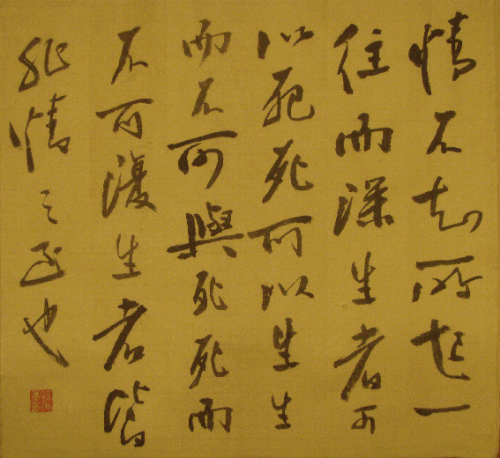 情不知所起一
往而深生者可
以死死可以生生
而不可與死死而
不可復生者皆
非情之至也